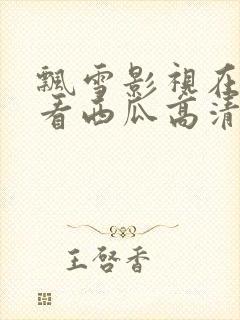 飄雪影視在
看西瓜高清
王啓香